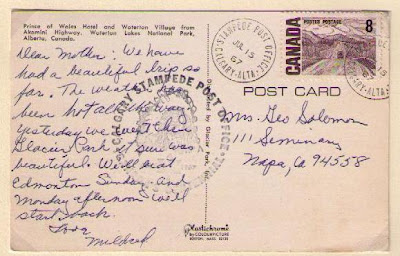 Prince of Wales Hotel and Waterton Village from
Akamini Highway, Waterton Lakes National Park,
Alberta, Canada.
Dear Mother: We have
had a beautiful trip so
far. The weather has
been hot all the way.
Yesterday we went thru
Glacier Park it sure was
beautiful. We'll be at
Edmonton Sunday and
Monday afternoon we'll
start back.
Love
Mildred
CALGARY STAMPEDE POST OFFICE
Distributed by Glacier Park, Inc.
Plastichrome
by COLOURPICTURE
BOSTON, MASS. 02130
STAMPEDE POST OFFICE
JUL 13
67
CALGARY-ALTA.
POSTES POSTAGE
8
CANADA
POST CARD
Mrs. Geo Solomon
1111 Seminary
Napa, Ca 94558